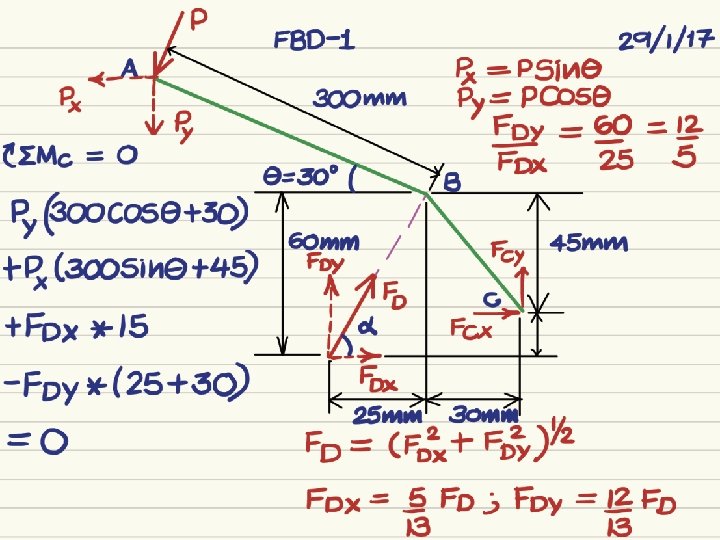 P
FBD-1
29/1/17
A
Px
Py
300mm
Px = PSinθ
Py = PCosθ
FDy/FDx = 60/25 = 12/5
↻ΣMc = 0
θ=30°
B
Py(300COSθ+30)
+Px(300Sinθ+45)
+FDx*15
-FDy*(25+30)
= 0
60mm
FDy
FD
α
FDx
FCy
C
FCx
45mm
25mm
30mm
FD = (FDx² + FDy²)^½
FDx = 5/13 FD ; FDy = 12/13 FD